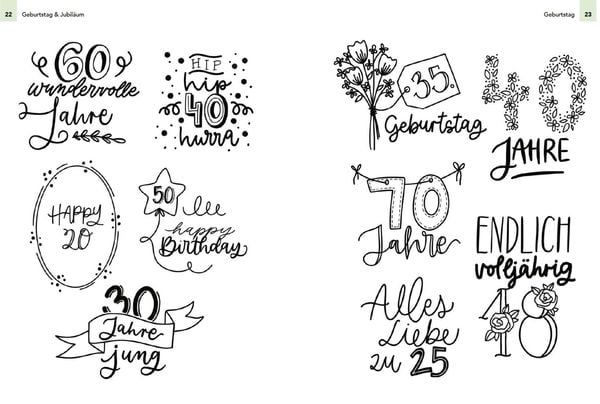 22 Geburtstag & Jubiläum
60
wundervolle
Jahre
HIP
hip
40
hurra
HAPPY
20
50
happy
Birthday
30
Jahre
jung
Geburtstag 23
35.
Geburtstag
40
JAHRE
70
Jahre
ENDLICH
volljährig
18
Alles
Liebe
zu 25